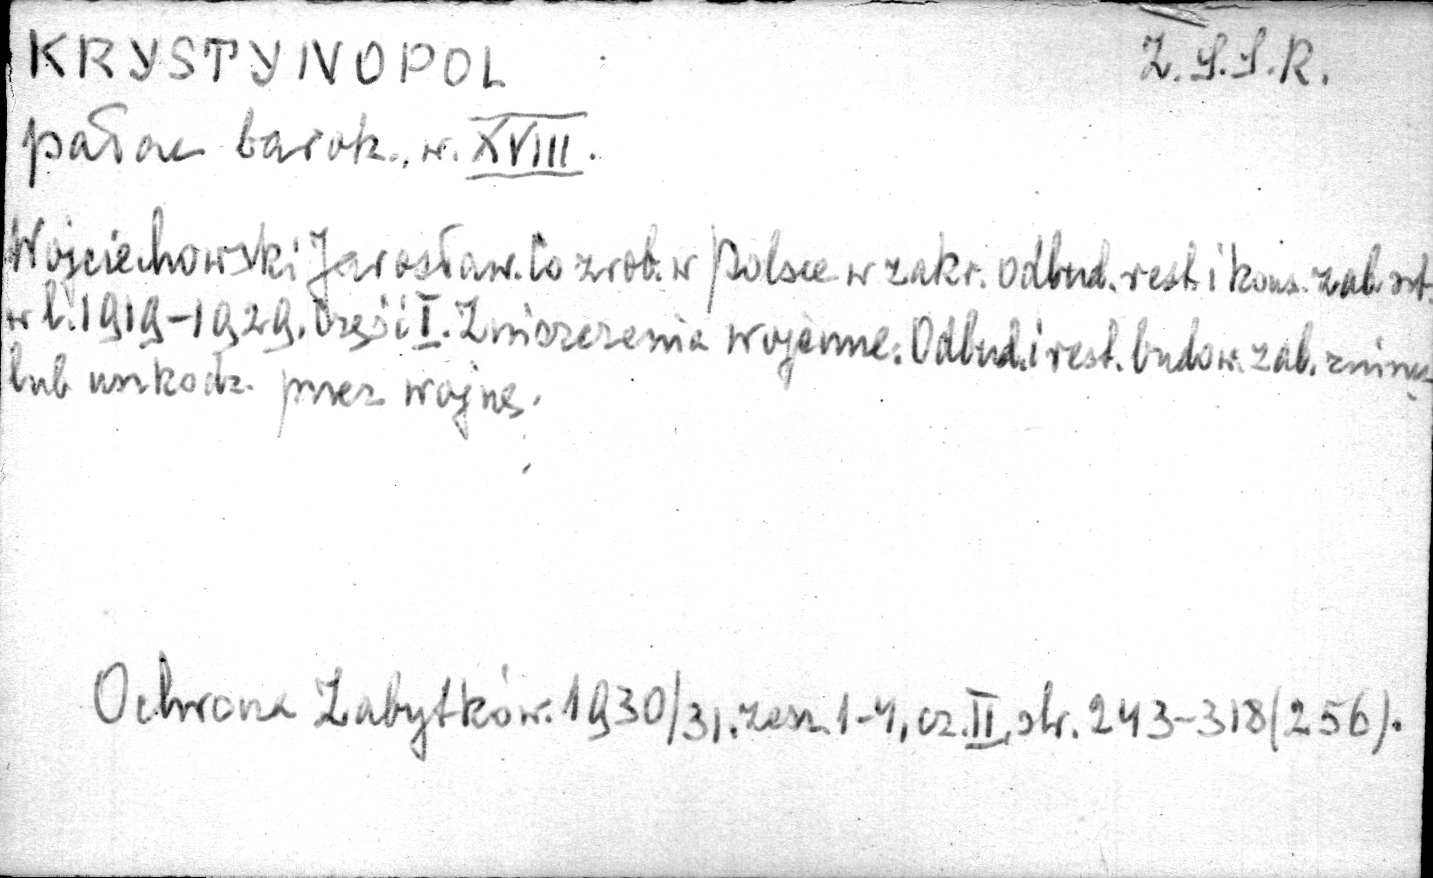 KRYSTYNOPOL Z.S.S.R.
pałac barok., w. XVIII.
Wojciechowski Jarosław. Co zrob. w Polsce w zakr. odbud. rest. i kons. zab. szt.
w l. 1919-1929. Część I. Zniszczenia wojenne. Odbud. i rest. budow. zab. zniszcz
lub uszkodz. przez wojnę.
Ochrona Zabytków. 1930/31. zesz. 1-4, cz. II, str. 243-318 (256).